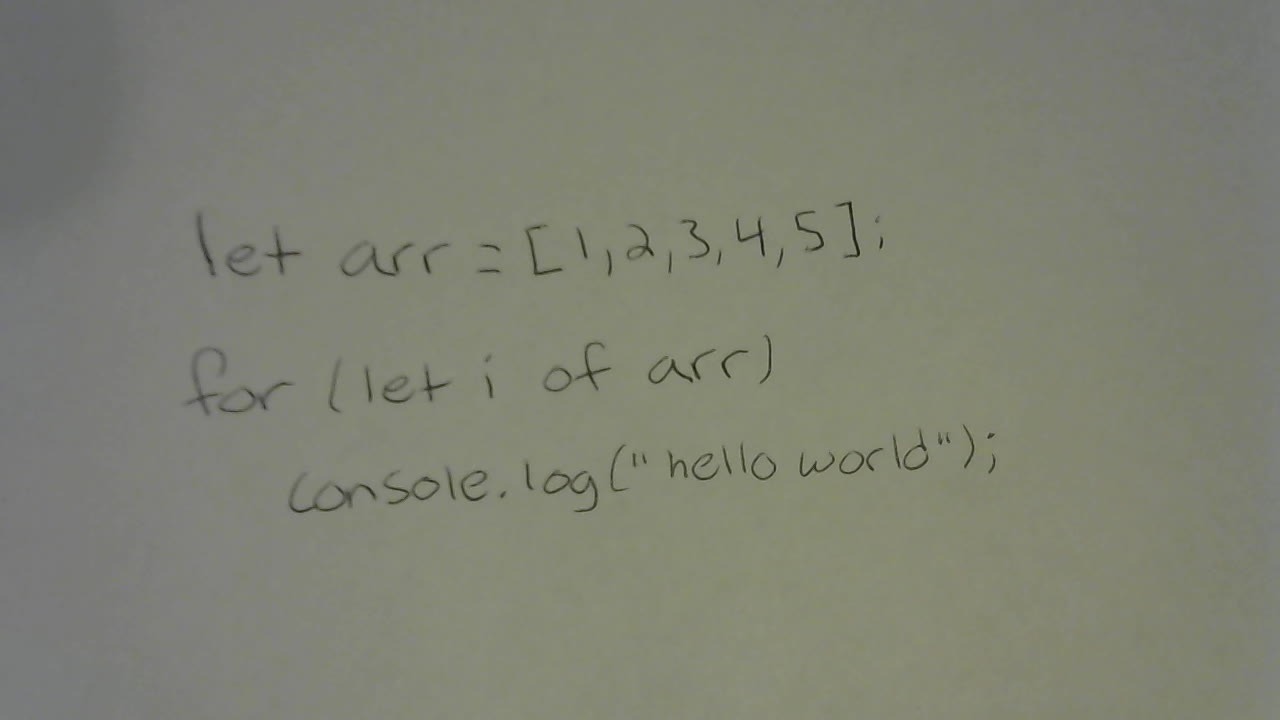 let arr = [1,2,3,4,5];
for (let i of arr)
console.log("hello world");